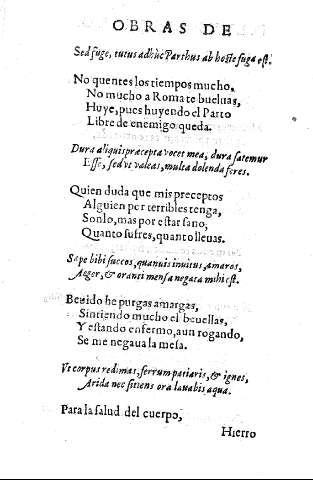 OBRAS DE
Sed fuge, tutus adhuc Parthus ab hoste fuga est.
No quentes los tiempos mucho,
No mucho a Roma te bueluas,
Huye, pues huyendo el Parto
Libre de enemigo queda.
Dura aliquis præcepta vocet mea, dura fatemur
Esse, sed vt valeas, multa dolenda feres.
Quien duda que mis preceptos
Alguien por terribles tenga,
Sonlo, mas por estar sano,
Quanto sufres, quanto lleuas.
Sæpe bibi succos, quamuis inuitus, amaros,
Aeger, & oranti mensa negata mihi est.
Beuido he purgas amargas,
Sintiendo mucho el beuellas,
Y estando enfermo, aun rogando,
Se me negaua la mesa.
Vt corpus redimas, ferrum patiaris, & ignes,
Arida nec sitiens ora lauabis aqua.
Para la salud del cuerpo,
Hierro